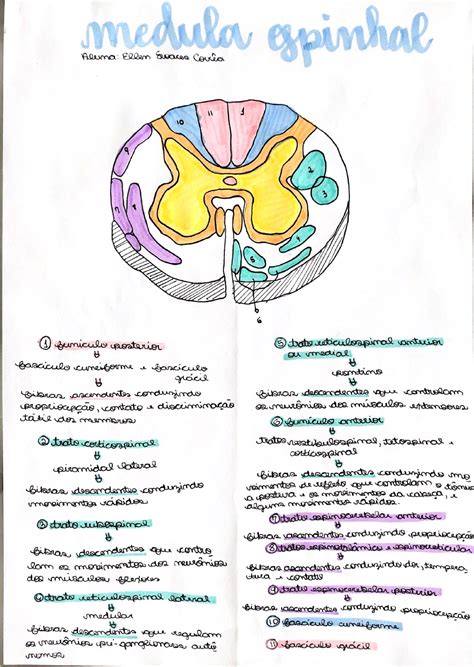 medula espinhal
Aluna: Ellen Svares Corrêa
10
11
1
9
7
8
2
3
4
5
6
① funículo posterior
fascículo cuneiforme e fascículo
grácil
fibras ascendentes conduzindo
propriocepção, contato e discriminação
tátil dos membros
② trato corticospinal
piramidal lateral
fibras descendentes conduzindo
movimentos rápidos
③ trato rubspinal
fibras descendentes que contro
lam os movimentos dos neurônios
dos músculos flexores
④ trato reticulospinal lateral
medular
fibras descendentes que regulam
os neurônios pré-ganglionares autô
nomos
⑤ trato reticulospinal anterior
ou medial
pontino
fibras descendentes que controlam
os neurônios dos músculos extensores
⑥ funículo anterior
tratos vestibulospinal, tetospinal e
corticospinal
fibras descendentes conduzindo mo
vimentos de reflexo que controlam o tônus
a postura e os movimentos da cabeça, e
alguns movimentos rápidos
⑦ trato espinocerebelar anterior
fibras ascendentes conduzindo propriocepção
⑧ trato espinotalâmico e espinoreticular
fibras ascendentes conduzindo dor, tempera
tura e contato
⑨ trato espinocerebelar posterior
fibras ascendentes conduzindo propriocepção
⑩ fascículo cuneiforme
⑪ fascículo grácil